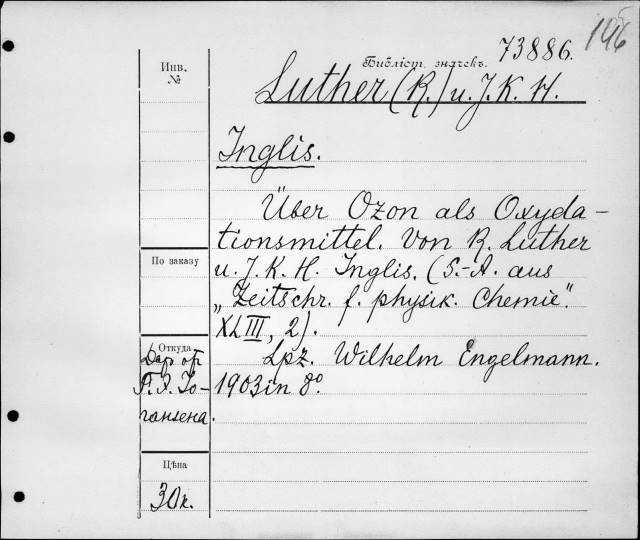 196
Библіот. значекъ. 73886.
Инв.
№
Luther (R.) u. J. K. H.
Inglis.
Über Ozon als Oxyda-
tionsmittel. Von R. Luther
По заказу
u. J. K. H. Inglis. (S.-A. aus
„Zeitschr. f. physik. Chemie".
XLIII, 2).
Откуда
Lpz. Wilhelm Engelmann.
1903 in 8°.
Даръ отъ
Г. Іо-
гансена.
Цѣна
30к.